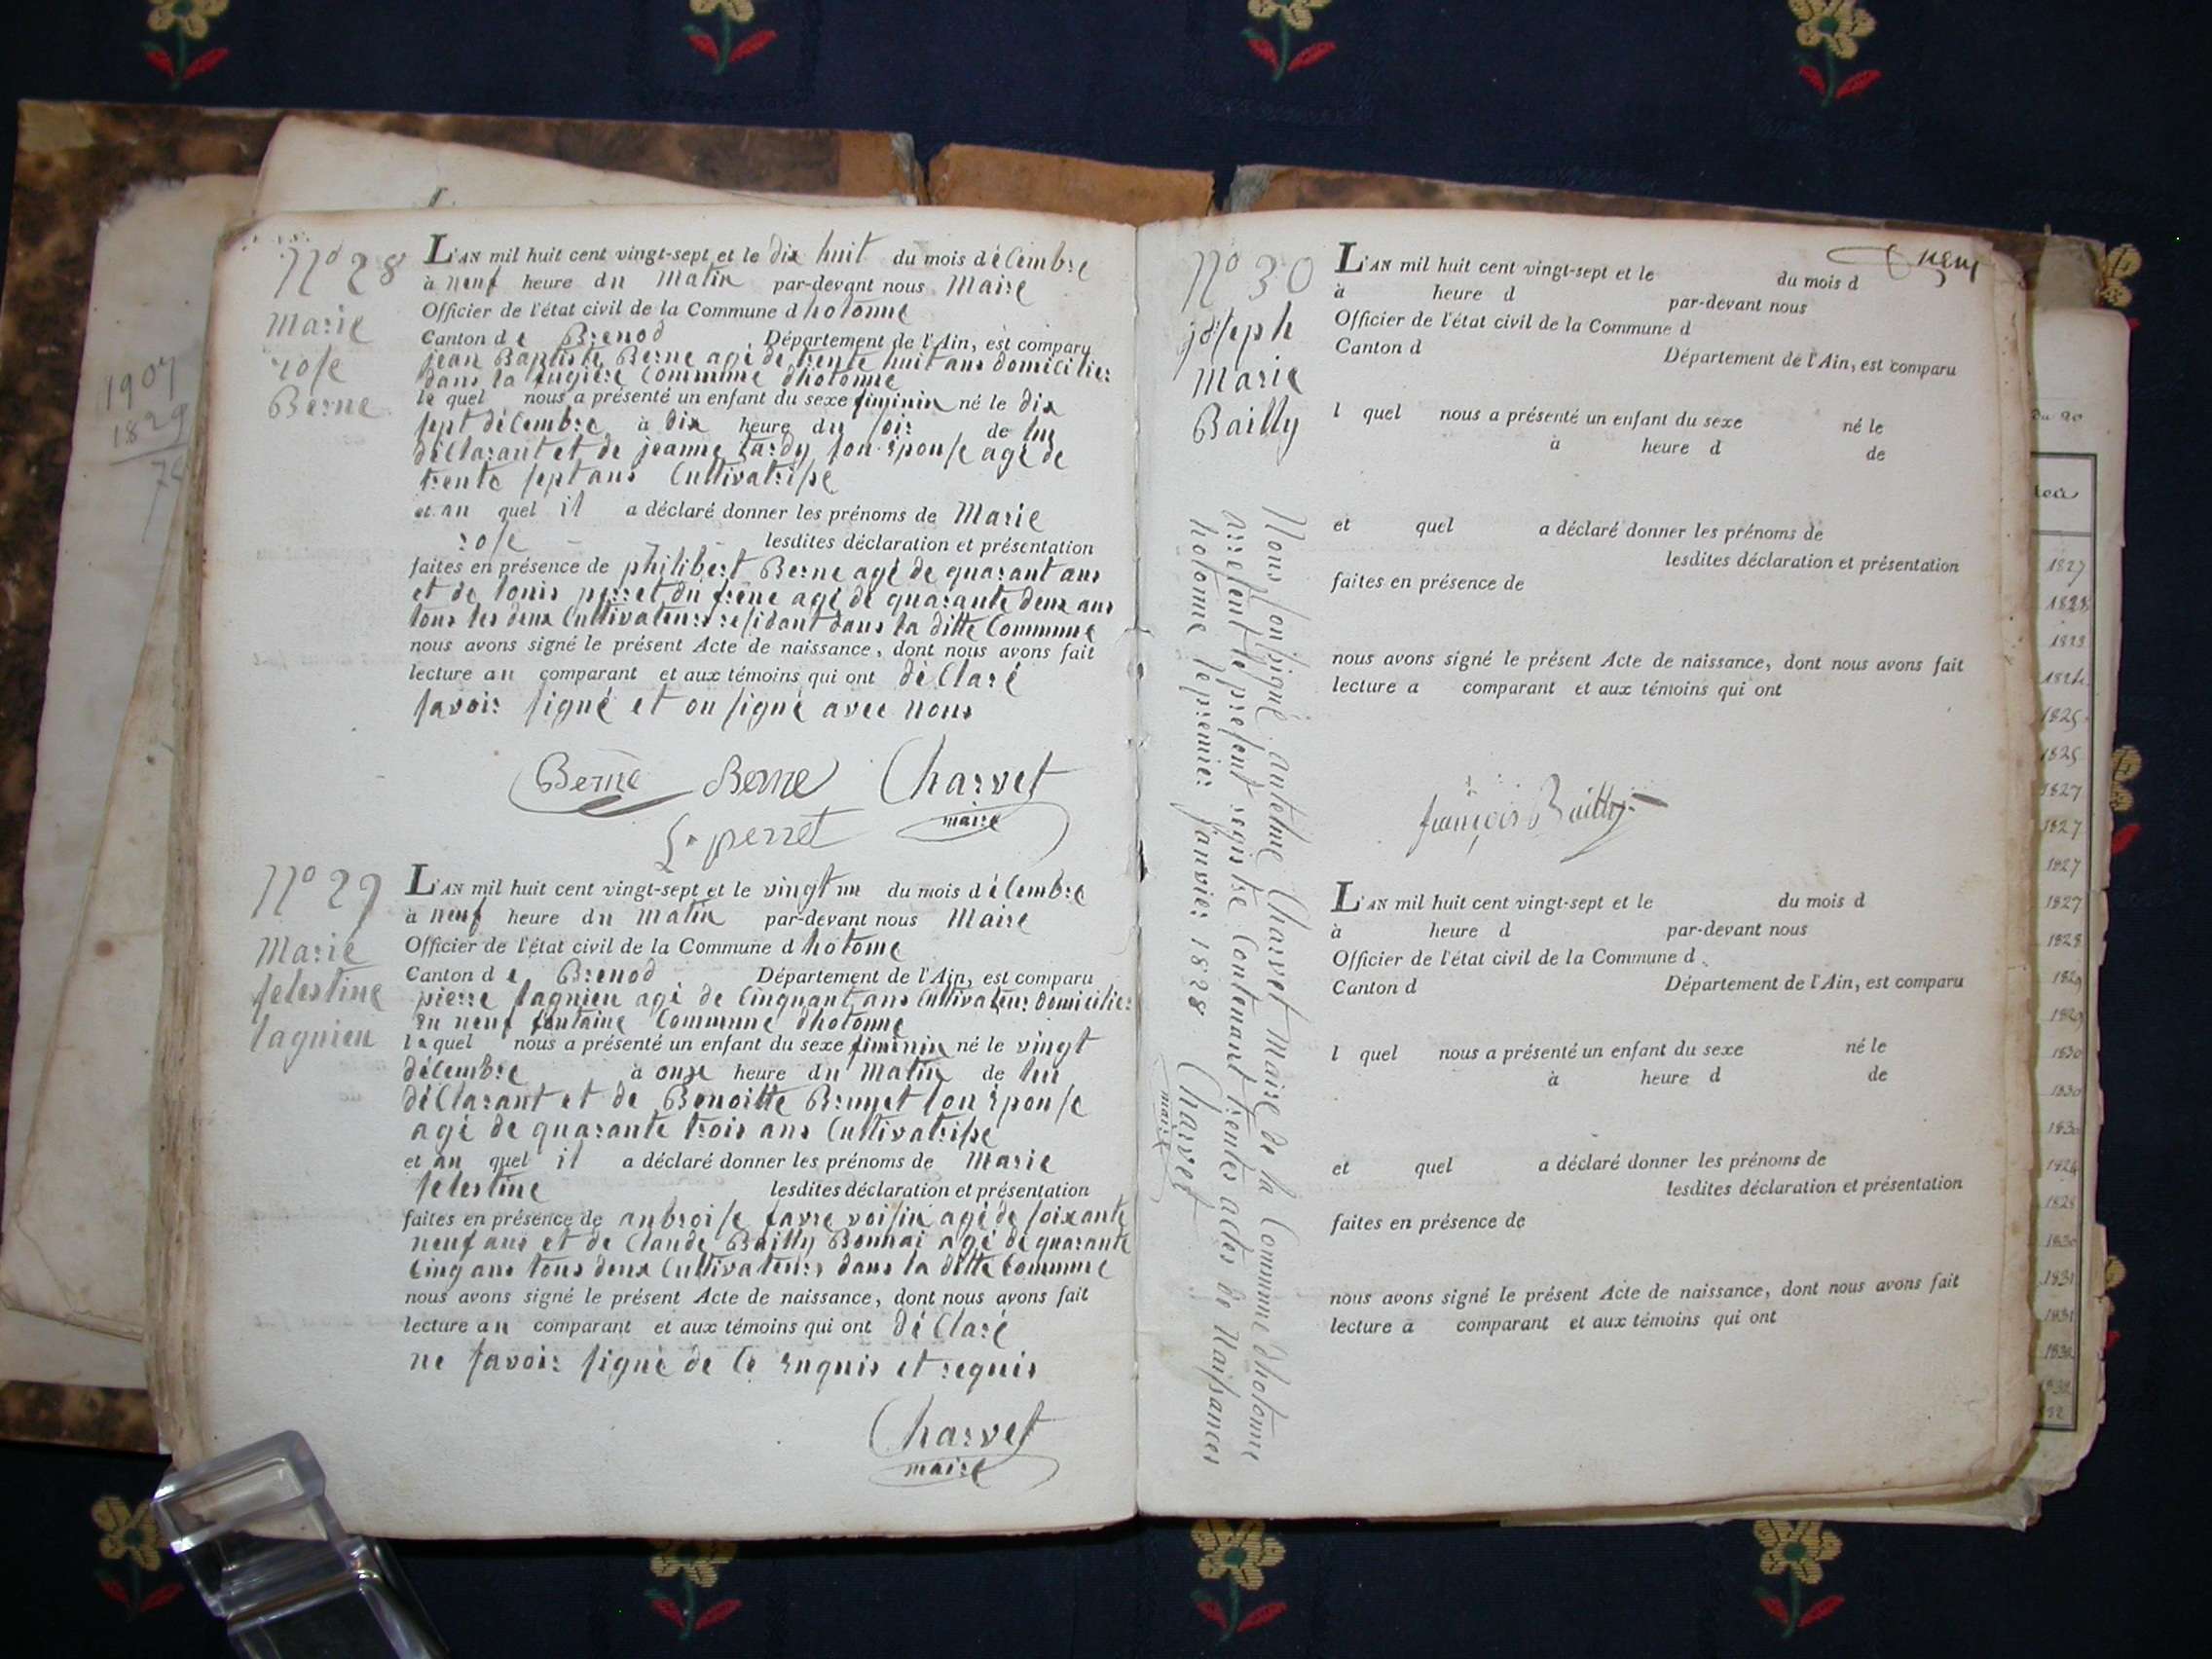 1907
1829
N° 28
Marie
rose
Berne
L'AN mil huit cent vingt-sept et le dix huit du mois décembre
à neuf heure du matin par-devant nous Maire
Officier de l'état civil de la Commune d hotonne
Canton de Brenod Département de l'Ain, est comparu
jean Baptiste Berne agé de trente huit ans domicilier
dans la Commune dhotonne
le quel nous a présenté un enfant du sexe féminin né le dix
sept décembre à dix heure du soir de lui
déclarant et de jeanne tardy son épouse agé de
trente sept ans Cultivatrisse
et au quel il a déclaré donner les prénoms de Marie
rose lesdites déclaration et présentation
faites en présence de philibert Berne agé de quarant ans
et de louis perret du frêne agé de quarante deux ans
tous les deux Cultivateurs residant dans la ditte Commune
nous avons signé le présent Acte de naissance, dont nous avons fait
lecture au comparant et aux témoins qui ont déClaré
savoir signé et on signé avec nous
Berne Berne Charvet
maire
L. perret
N° 29
Marie
selestine
lagnieu
L'AN mil huit cent vingt-sept et le vingt un du mois décembre
à neuf heure du matin par-devant nous Maire
Officier de l'état civil de la Commune d hotone
Canton de Brenod Département de l'Ain, est comparu
pierre lagnieu agé de Cinquant ans Cultivateur domicilier
en neuf fontaine Commune dhotonne
le quel nous a présenté un enfant du sexe féminin né le vingt
décembre à onze heure du matin de lui
déClarant et de Benoitte Brunet son épouse
agé de quarante trois ans Cultivatrisse
et au quel il a déclaré donner les prénoms de Marie
selestine lesdites déclaration et présentation
faites en présence de anbroise favre voisin agé de soixante
neuf ans et de Claude Bailly Bonnai agé de quarante
Cinq ans tous deux Cultivateurs dans la ditte Commune
nous avons signé le présent Acte de naissance, dont nous avons fait
lecture au comparant et aux témoins qui ont déClaré
ne savoir signé de ce enquis et requis
Charvet
maire
N° 30
joseph
marie
Bailly
Nous soussigné antelme Charvet maire de la Commune dhotonne
arretent le present registre Contenant trentes actes de Naissances
hotonne le premier janvier 1828 Charvet
maire
L'AN mil huit cent vingt-sept et le du mois d
à heure d par-devant nous
Officier de l'état civil de la Commune d
Canton d Département de l'Ain, est comparu
l quel nous a présenté un enfant du sexe né le
à heure d de
et quel a déclaré donner les prénoms de
lesdites déclaration et présentation
faites en présence de
nous avons signé le présent Acte de naissance, dont nous avons fait
lecture a comparant et aux témoins qui ont
françois Bailly
L'AN mil huit cent vingt-sept et le du mois d
à heure d par-devant nous
Officier de l'état civil de la Commune d
Canton d Département de l'Ain, est comparu
l quel nous a présenté un enfant du sexe né le
à heure d de
et quel a déclaré donner les prénoms de
lesdites déclaration et présentation
faites en présence de
nous avons signé le présent Acte de naissance, dont nous avons fait
lecture a comparant et aux témoins qui ont
1827
1828
1825
1825
1827
1827
1827
1827
1828
1829
1829
1830
1830
1830
1828
1830
1831
1831